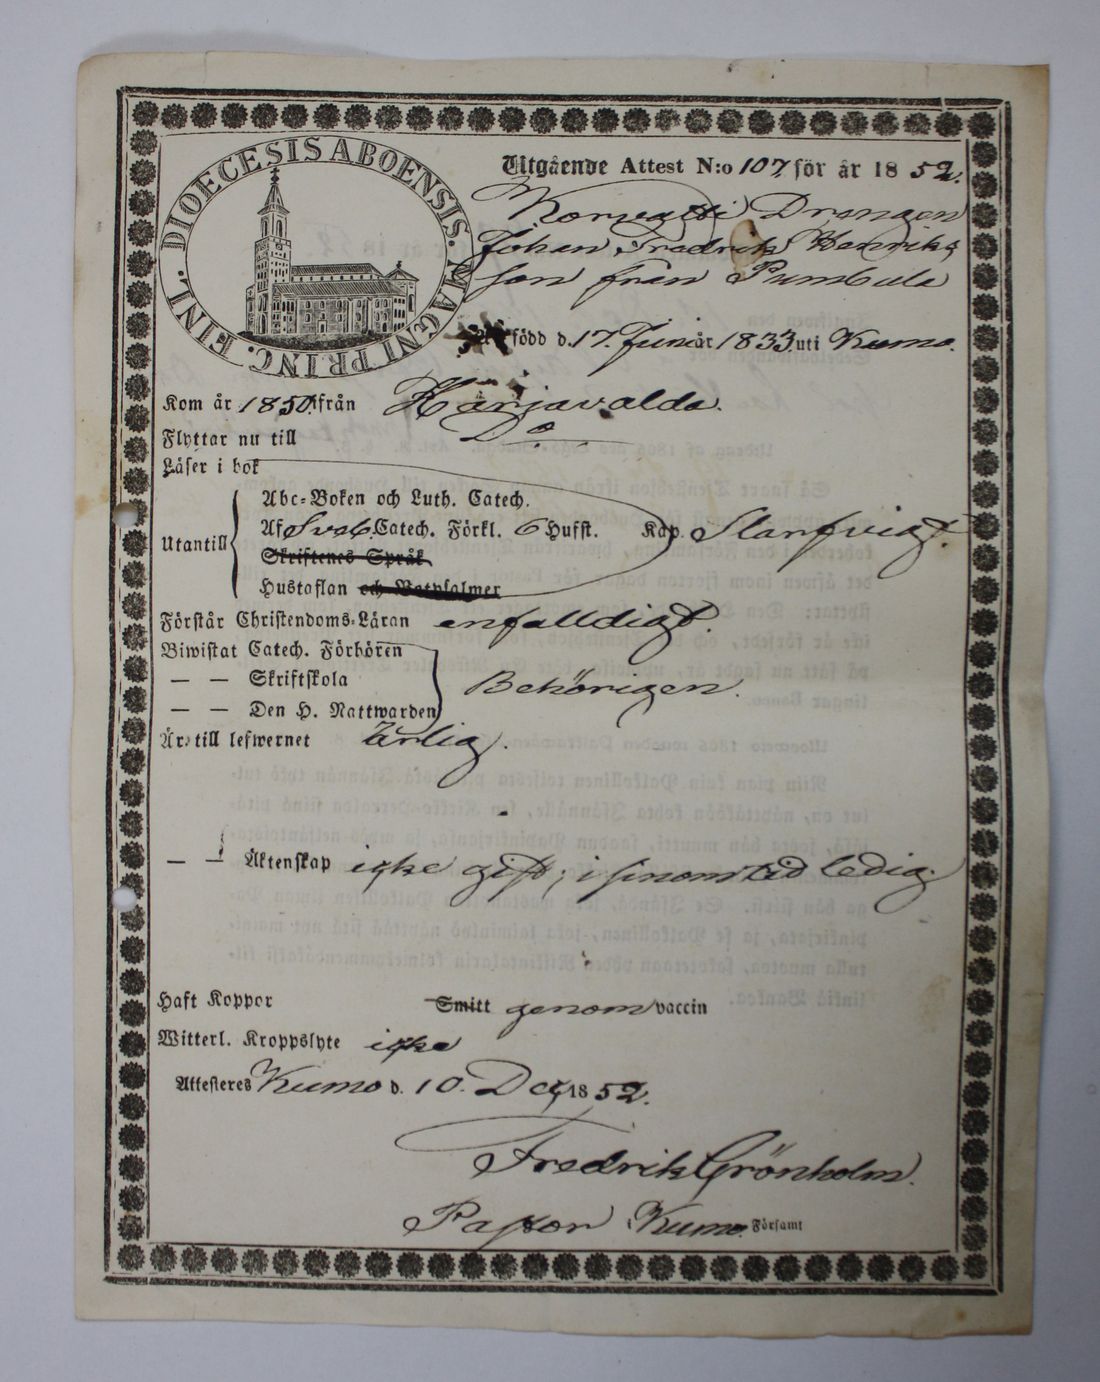 DIOECESIS ABOENSIS. MAGNI PRINC. FINL.
Utgående Attest N:o 107 för år 1852.
Drengen
Johan Fredrik Henriks
son från Pumbula
född d. 17. Juni år 1833 uti Kumo.
Kom år 1850 ifrån Harjavalda.
Flyttar nu till Do
Läser i bok
Abc-Boken och Luth. Catech.
Utantill Af Sveb. Catech. Förkl. 6 Hufst. Kap. Slarfvigt.
Skriftenes Språk
Hustaflan och Botpsalmer
Förstår Christendoms-Läran enfalldigt.
Biwistat Catech. Förhören
— — Skriftskola Behörigen.
— — Den H. Nattwarden
Är till lefwernet Ärlig.
— — Äktenskap icke gift; i sinom tid ledig.
Haft Koppor Smitt genom vaccin
Witterl. Kroppslyte icke
Attesteres Kumo d. 10. Dec. 1852.
Fredrik Grönholm.
Pastor i Kumo Församl